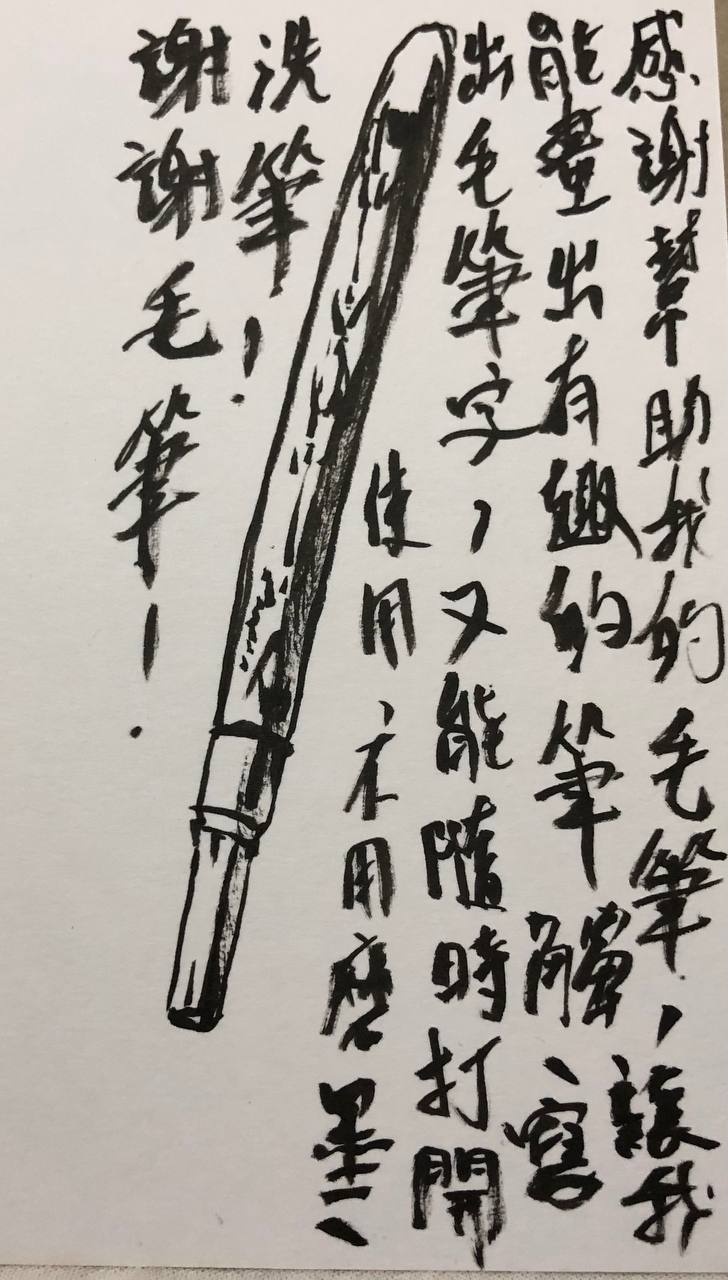 感謝幫助我的毛筆，讓我
能畫出有趣的筆觸、寫
出毛筆字，又能隨時打開
使用、不用磨墨、
洗筆！
謝謝毛筆！